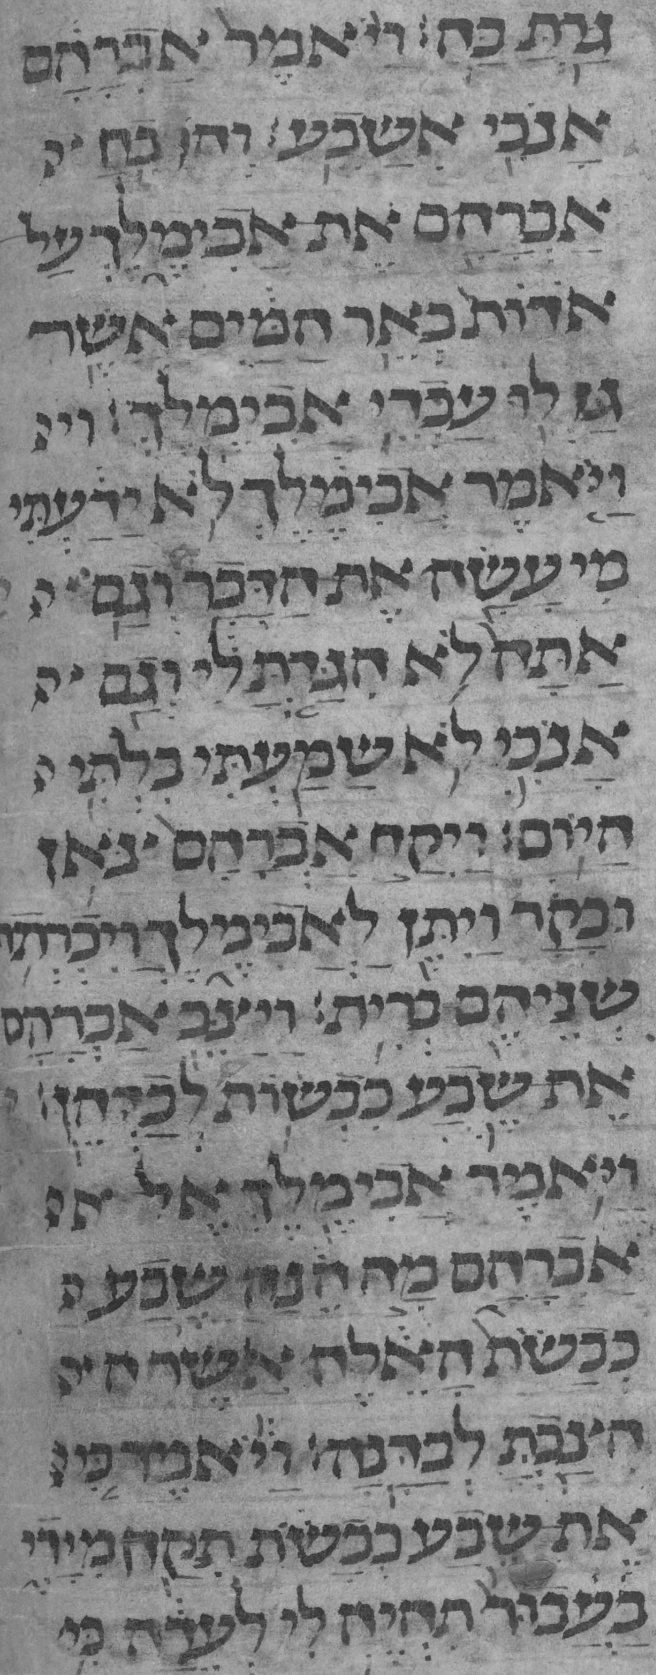 גרת בה׃ ויאמר אברהם
אנכי אשבע׃ והוכח
אברהם את אבימלך על
אדות באר המים אשר
גזלו עבדי אבימלך׃
ויאמר אבימלך לא ידעתי
מי עשה את הדבר וגם
אתה לא הגדת לי וגם
אנכי לא שמעתי בלתי
היום׃ ויקח אברהם צאן
ובקר ויתן לאבימלך ויכרתו
שניהם ברית׃ ויצב אברהם
את שבע כבשות לבדהן׃
ויאמר אבימלך אל
אברהם מה הנה שבע
כבשת האלה אשר
הצבת לבדנה׃ ויאמר כי
את שבע כבשת תקח מידי
בעבור תהיה לי לעדה כי